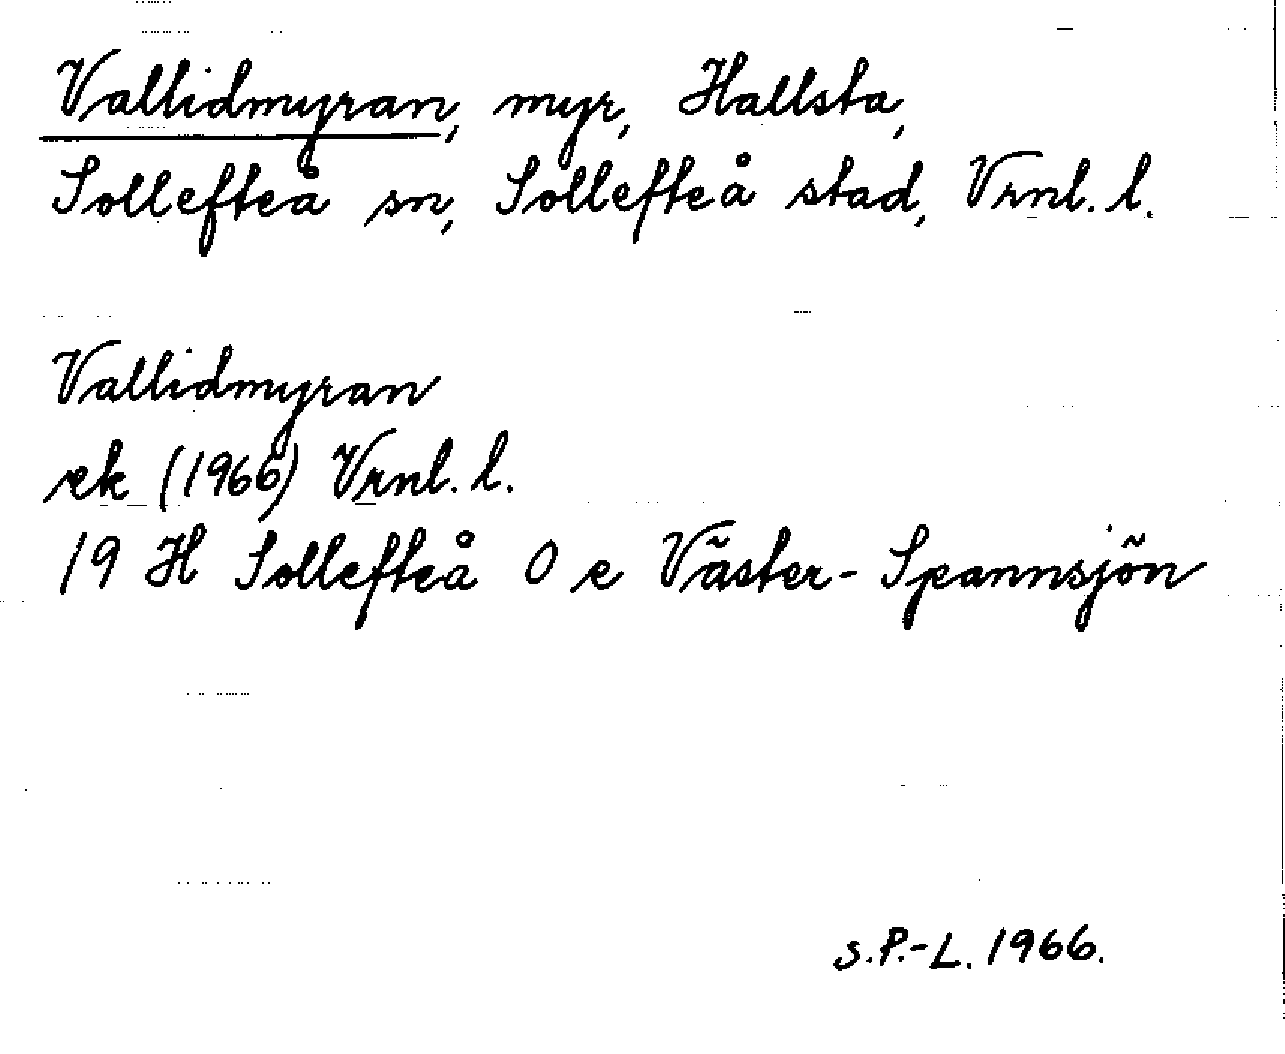 Vallidmyran, myr, Hallsta,
Sollefteå sn, Sollefteå stad, Vrnl. l.
Vallidmyran
ek (1966) Vrnl. l.
19 H Sollefteå O e Väster-Spannsjön
S.P.-L. 1966.